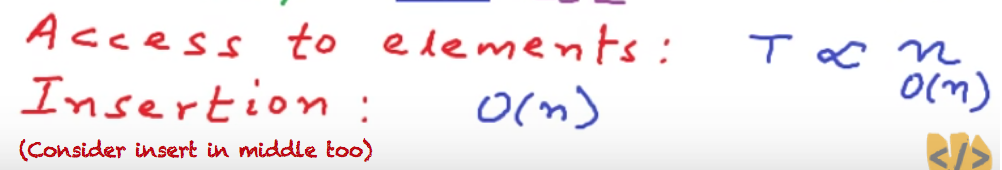 Access to elements: T ∝ n
O(n)
Insertion: O(n)
(Consider insert in middle too)
</>